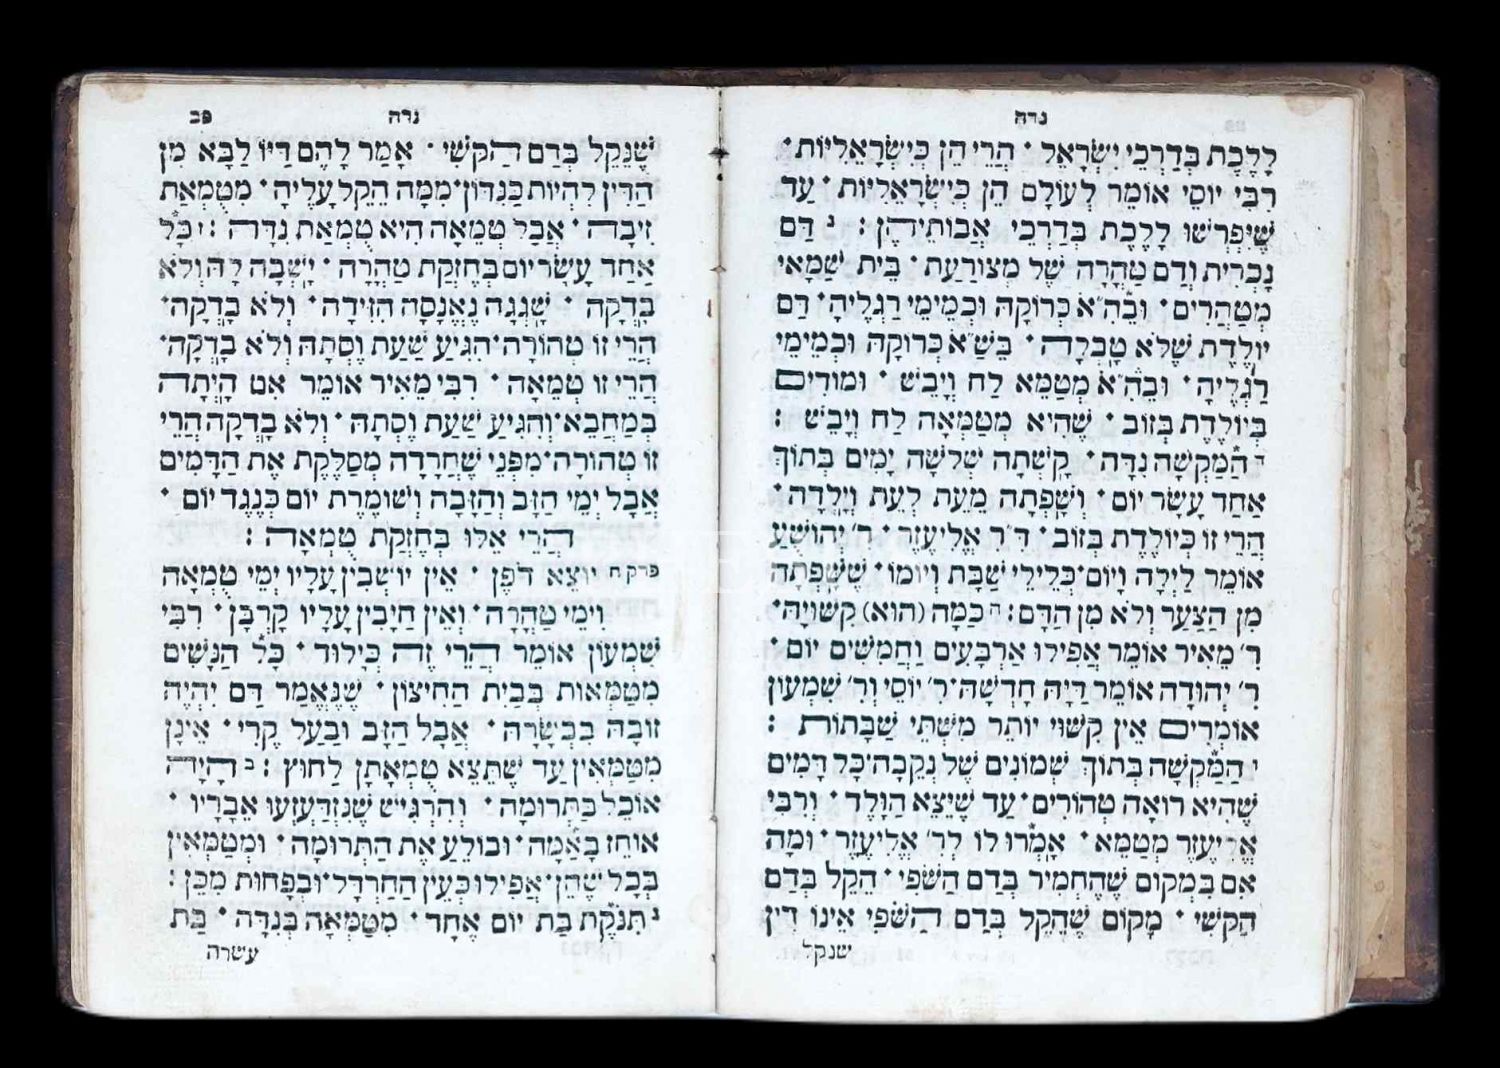 נדה
לֵלֶכֶת בְּדַרְכֵי יִשְׂרָאֵל · הֲרֵי הֵן כְּיִשְׂרָאֵלִיּוֹת ·
רַבִּי יוֹסֵי אוֹמֵר לְעוֹלָם הֵן כְּיִשְׂרָאֵלִיּוֹת · עַד
שֶׁיִּפְרְשׁוּ לָלֶכֶת בְּדַרְכֵי אֲבוֹתֵיהֶן : ג דַּם
נָכְרִית וְדַם טָהֳרָה שֶׁל מְצוֹרַעַת · בֵּית שַׁמַּאי
מְטַהֲרִים · וּבֵה״א כְּרוֹקָהּ וּכְמֵימֵי רַגְלֶיהָ · דַּם
יוֹלֶדֶת שֶׁלֹּא טָבְלָה · בֵּשׁ״א כְּרוֹקָהּ וּכְמֵימֵי
רַגְלֶיהָ · וּבֵה״א מְטַמֵּא לַח וְיָבֵשׁ · וּמוֹדִים
בְּיוֹלֶדֶת בְּזוֹב · שֶׁהִיא מְטַמְּאָה לַח וְיָבֵשׁ :
ד הַמַּקְשָׁה נִדָּה · קָשְׁתָה שְׁלֹשָׁה יָמִים בְּתוֹךְ
אַחַד עָשָׂר יוֹם · וְשָׁפְתָה מֵעֵת לְעֵת וְיָלְדָה ·
הֲרֵי זוֹ כְּיוֹלֶדֶת בְּזוֹב · ד״ר אֱלִיעֶזֶר · ר׳ יְהוֹשֻׁעַ
אוֹמֵר לַיְלָה וָיוֹם · כְּלֵילֵי שַׁבָּת וְיוֹמוֹ · שֶׁשָּׁפְתָה
מִן הַצַּעַר וְלֹא מִן הַדָּם : ה כַּמָּה (הוּא) קִשּׁוּיָהּ ·
ר׳ מֵאִיר אוֹמֵר אֲפִילוּ אַרְבָּעִים וַחֲמִשִּׁים יוֹם ·
ר׳ יְהוּדָה אוֹמֵר דַּיָּהּ חָדְשָׁהּ · ר׳ יוֹסֵי וְר׳ שִׁמְעוֹן
אוֹמְרִים אֵין קִשּׁוּי יוֹתֵר מִשְּׁתֵּי שַׁבָּתוֹת :
ו הַמַּקְשָׁה בְּתוֹךְ שְׁמוֹנִים שֶׁל נְקֵבָה · כָּל דָּמִים
שֶׁהִיא רוֹאָה טְהוֹרִים · עַד שֶׁיֵּצֵא הַוָּלָד · וְרַבִּי
אֱלִיעֶזֶר מְטַמֵּא · אָמְרוּ לוֹ לְר׳ אֱלִיעֶזֶר · וּמָה
אִם בִּמְקוֹם שֶׁהֶחְמִיר בְּדַם הַשֹּׁפִי · הֵקֵל בְּדַם
הַקֹּשִׁי · מָקוֹם שֶׁהֵקֵל בְּדַם הַשֹּׁפִי אֵינוֹ דִין
שנקל
נדה פב
שֶׁנָּקֵל בְּדַם הַקֹּשִׁי · אָמַר לָהֶם דַּיּוֹ לַבָּא מִן
הַדִּין לִהְיוֹת כַּנִּדּוֹן · מִמָּה הֵקֵל עָלֶיהָ · מִטֻּמְאַת
זִיבָה · אֲבָל טְמֵאָה הִיא טֻמְאַת נִדָּה : ז כָּל
אַחַד עָשָׂר יוֹם בְּחֶזְקַת טָהֳרָה · יָשְׁבָה לָהּ וְלֹא
בָּדְקָה · שָׁגְגָה נֶאֶנְסָה הֵזִידָה · וְלֹא בָדְקָה ·
הֲרֵי זוֹ טְהוֹרָה · הִגִּיעַ שְׁעַת וִסְתָּהּ וְלֹא בָדְקָה ·
הֲרֵי זוֹ טְמֵאָה · רַבִּי מֵאִיר אוֹמֵר אִם הָיְתָה
בְמַחֲבֵא · וְהִגִּיעַ שְׁעַת וִסְתָּהּ · וְלֹא בָדְקָה הֲרֵי
זוֹ טְהוֹרָה · מִפְּנֵי שֶׁחֲרָדָה מְסַלֶּקֶת אֶת הַדָּמִים
אֲבָל יְמֵי הַזָּב וְהַזָּבָה וְשׁוֹמֶרֶת יוֹם כְּנֶגֶד יוֹם ·
הֲרֵי אֵלּוּ בְּחֶזְקַת טֻמְאָה :
פרק ח יוֹצֵא דֹפֶן · אֵין יוֹשְׁבִין עָלָיו יְמֵי טֻמְאָה
וִימֵי טָהֳרָה · וְאֵין חַיָּבִין עָלָיו קָרְבָּן · רַבִּי
שִׁמְעוֹן אוֹמֵר הֲרֵי זֶה כְּיָלוּד · כָּל הַנָּשִׁים
מִטַּמְּאוֹת בְּבַיִת הַחִיצוֹן · שֶׁנֶּאֱמַר דָּם יִהְיֶה
זוֹבָהּ בִּבְשָׂרָהּ · אֲבָל הַזָּב וּבַעַל קֶרִי · אֵינָן
מִטַּמְּאִין עַד שֶׁתֵּצֵא טֻמְאָתָן לַחוּץ : ב הָיָה
אוֹכֵל בַּתְּרוּמָה · וְהִרְגִּישׁ שֶׁנִּזְדַּעְזְעוּ אֵבָרָיו ·
אוֹחֵז בָּאַמָּה · וּבוֹלֵעַ אֶת הַתְּרוּמָה · וּמְטַמְּאִין
בְּכָל שֶׁהֵן · אֲפִילוּ כְּעֵין הַחַרְדָּל · וּבְפָחוּת מִכֵּן :
ג תִּנֹּקֶת בַּת יוֹם אֶחָד · מִטַּמְּאָה בְּנִדָּה · בַּת
עשרה